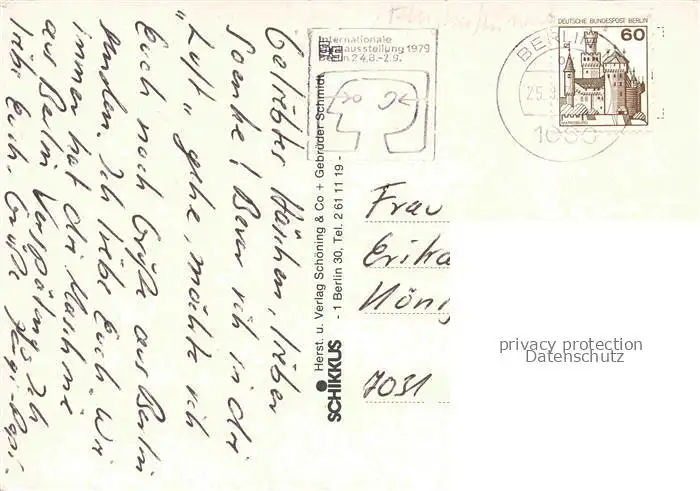 Geliebtes Häschen, lieber
Soenke! Bevor ich in die
"Luft" gehe, möchte ich
Euch noch Grüße aus Berlin
senden. Ich liebe Euch. Wie
immer hat die Maschine
aus Berlin Verspätung. Ich
liebe Euch. Grüße
Internationale
Funkausstellung 1979
Berlin 24.8.-2.9.
BERLIN
25.
1000
DEUTSCHE BUNDESPOST BERLIN
60
MARKSBURG
SCHIKKUS
Herst. u. Verlag Schöning & Co + Gebrüder Schmidt
- 1 Berlin 30, Tel. 2 61 11 19 -
Frau
Erika
König
7031
privacy protection
Datenschutz